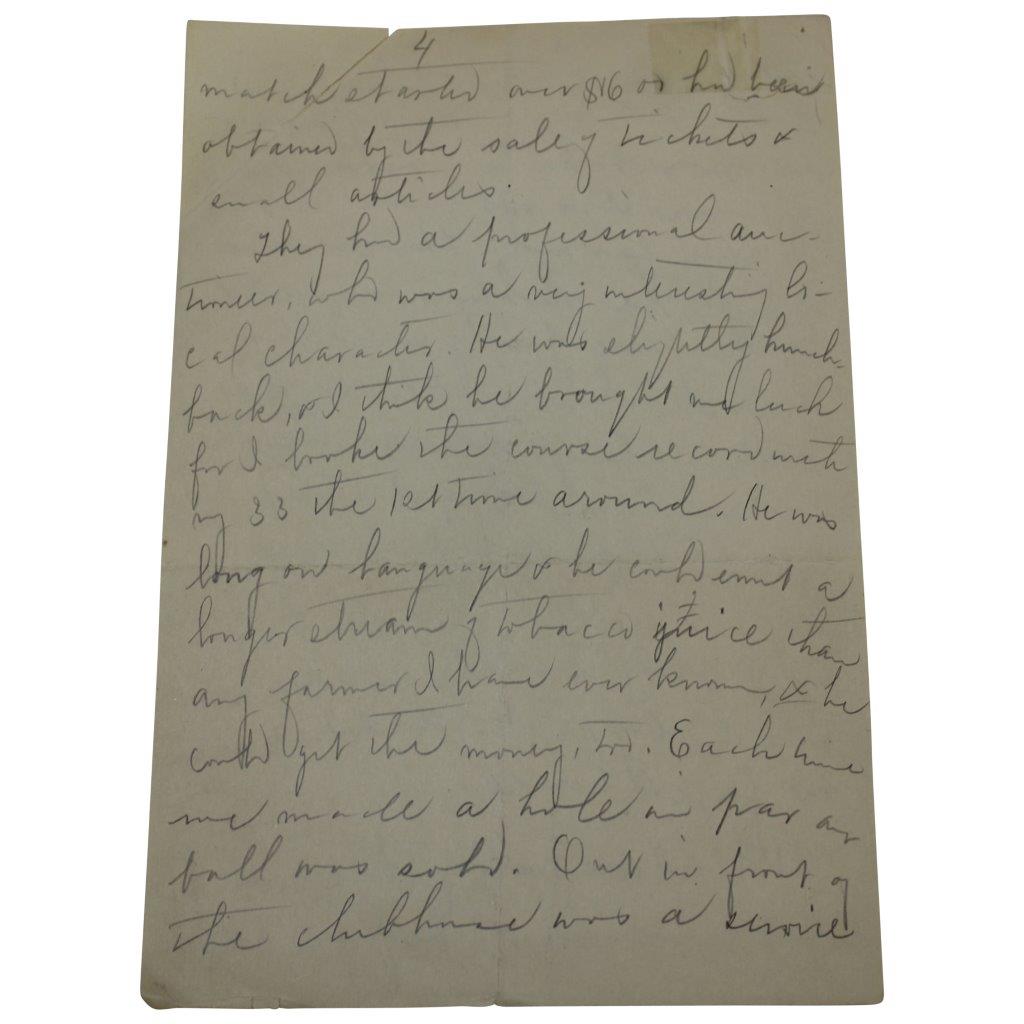 4
match started over $16 00 had been
obtained by the sale of tickets &
small articles.
They had a professional auc-
tioneer, who was a very interesting lo-
cal character. He was slightly hunch-
back, & I think he brought me luck
for I broke the course record with
my 33 the 1st time around. He was
long on language & he could emit a
longer stream of tobacco juice than
any farmer I have ever known, & he
could get the money, too. Each time
we made a hole in par our
ball was sold. Out in front of
the clubhouse was a service